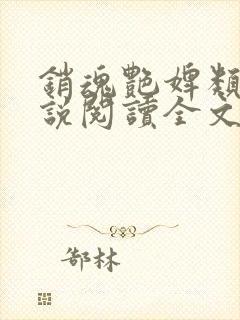 銷魂艷婢類
說閱讀全文
郜林